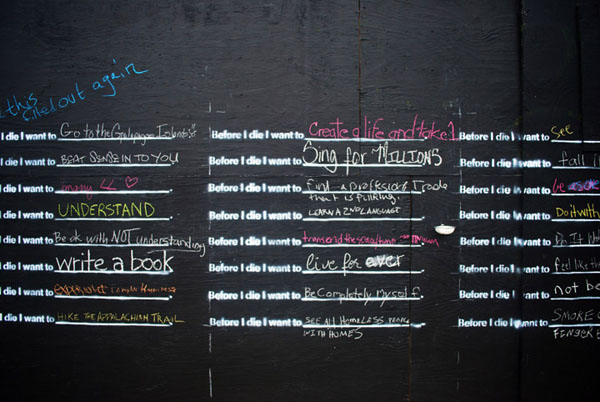 this
filled out again
I die I want to Go to the Galapagos Islands!!
I die I want to BEAT SENSE INTO YOU
I die I want to marry
I die I want to UNDERSTAND
I die I want to Be ok with NOT understanding
I die I want to write a book
I die I want to EXPERIENCE
I die I want to HIKE THE APPALACHIAN TRAIL
Before I die I want to Create a life and take 1
Before I die I want to Sing for MILLIONS
Before I die I want to find a profession/trade
that is fulfilling.
LEARN A 2ND LANGUAGE
Before I die I want to
Before I die I want to live for ever
Before I die I want to Be Completely Myself.
Before I die I want to SEE ALL HOMELESS PEOPLE
WITH HOMES
Before I die I want to see
Before I die I want to fall i
Before I die I want to be
Before I die I want to Do it with
Before I die I want to Do It
Before I die I want to feel like th
Before I die I want to not be
Before I die I want to SMOKE
FINGER